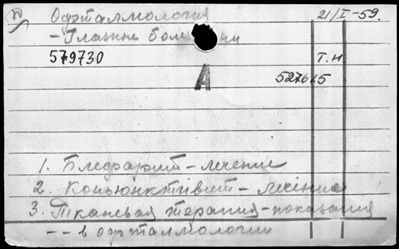 Офталмология 21/I-59.
- Глазни болести
579730 Т.Н.
А 527615
1. Блефарит - лечение
2. Конюнктивит - лечение
3. Тканевая терапия - показания
- - в офталмологии